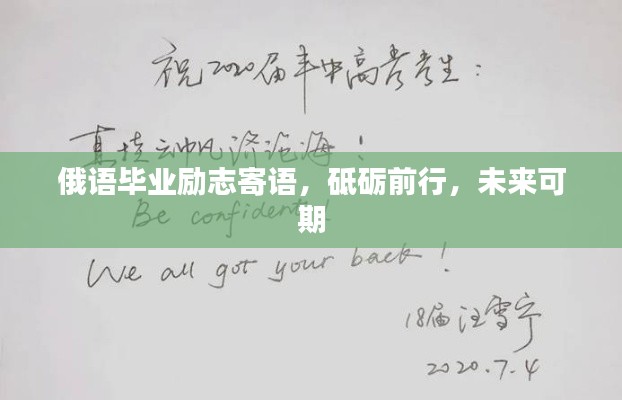 祝2020届丰中高考考生：
直挂云帆济沧海！
俄语毕业励志寄语，砥砺前行，未来可
期
Be confident!
We all got your back!
18届汪雪宁
2020.7.4